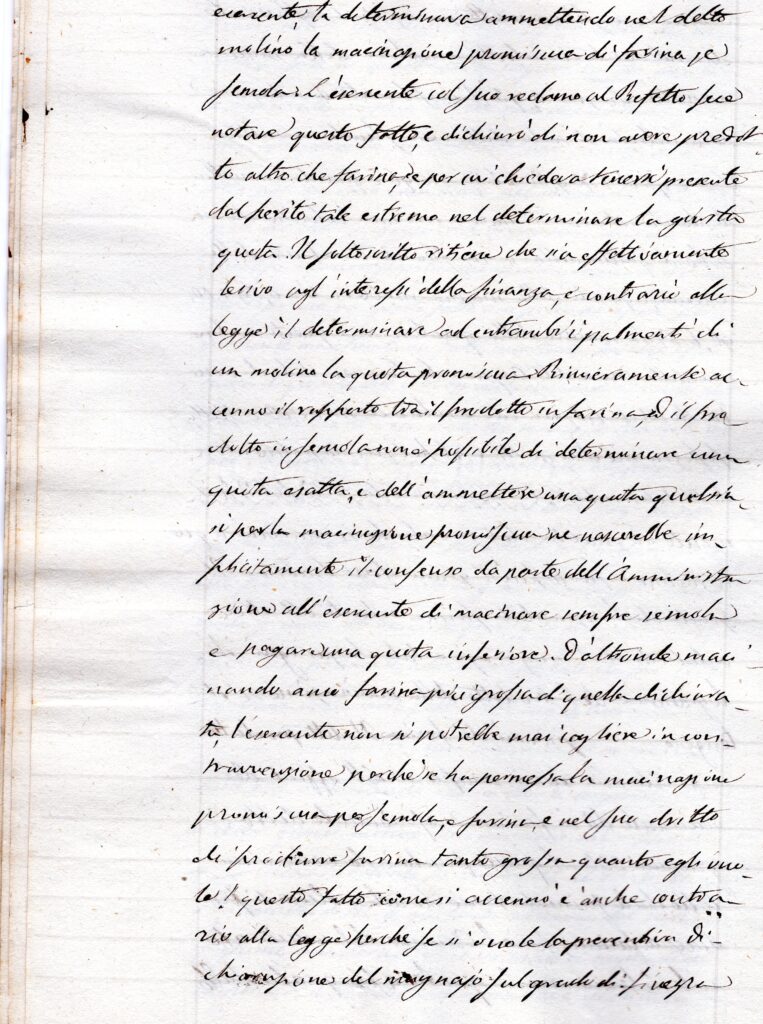 esercente, la determinava ammettendo nel detto
molino la macinazione promiscua di farina, e
semola. L'esercente col suo reclamo al Prefetto fece
notare questo fatto, e dichiarò di non avere prodot-
to altro che farina, e per cui chiedeva tenersi presente
dal perito tale estremo nel determinare la giusta
quota. Il sottoscritto ritiene che sia effettivamente
lesivo agl'interessi della finanza, e contrario alla
legge il determinare ad entrambi i palmenti di
un molino la quota promiscua. Primieramente ac-
cenno il rapporto tra il prodotto in farina, ed il pro-
dotto in semola non è possibile di determinare una
quota esatta, e dell'ammettere una quota qualsia-
si per la macinazione promiscua ne nascerebbe im-
plicitamente il consenso da parte dell'Amministra
zione all'esercente di macinare sempre semola
e pagare una quota inferiore. D'altronde maci
nando anco farina più grossa di quella dichiara-
ta, l'esercente non si potrebbe mai cogliere in con-
travvenzione perchè se ha permessa la macinazione
promiscua per semola, e farina, è nel suo dritto
di produrre farina tanto grossa quanto egli vuo-
le! questo fatto come si accennò è anche contra-
rio alla legge perchè se si vuole la preventiva di-
chiarazione del mugnajo sul grado di finezza